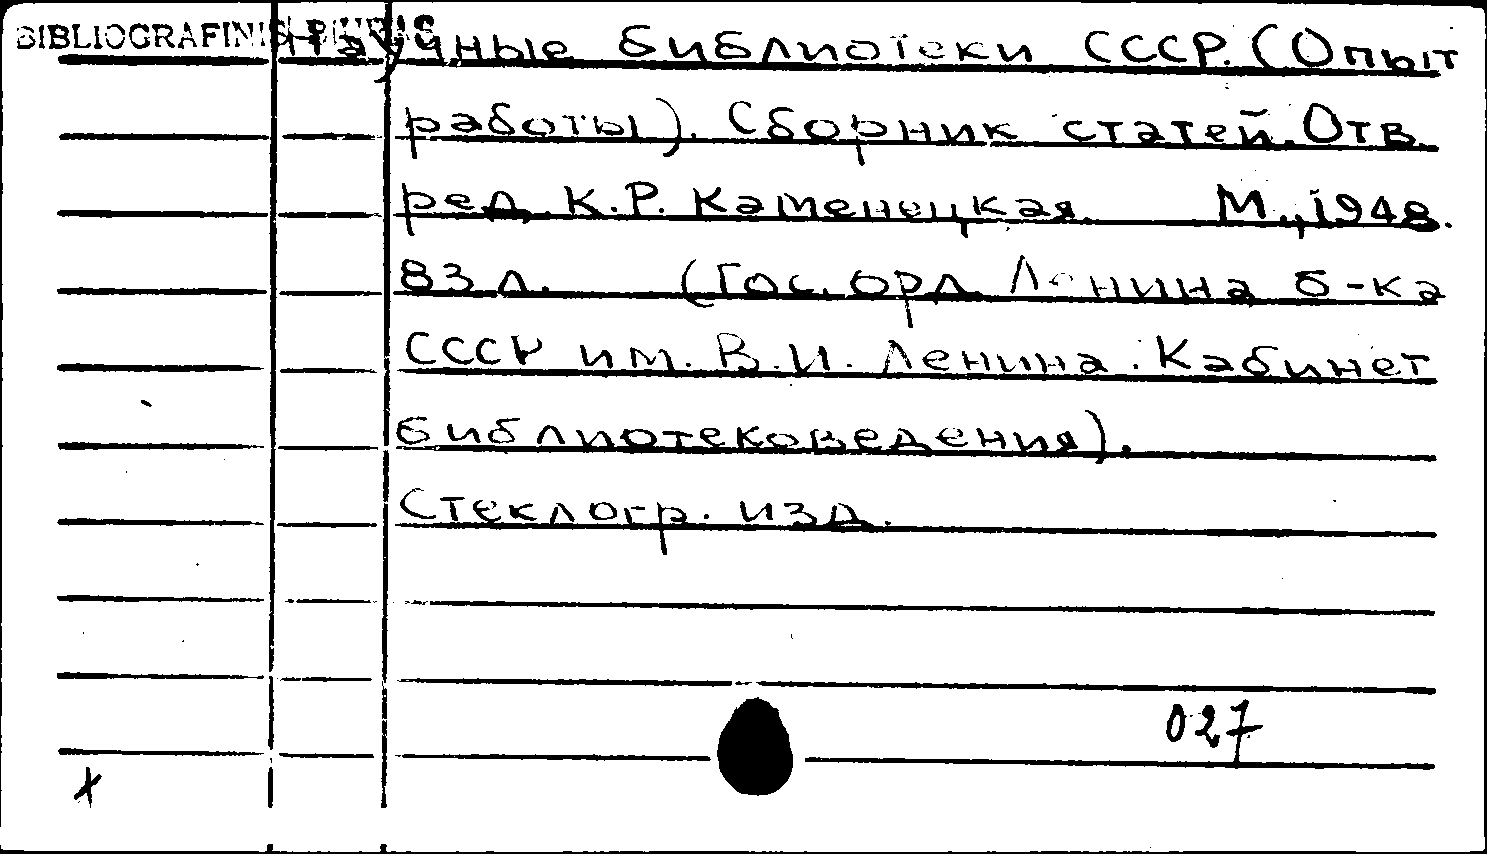 BIBLIOGRAFINIS BIURAS
Научные библиотеки СССР. (Опыт
работы). Сборник статей. Отв.
ред. К.Р. Каменецкая. М., 1948.
83 л. (Гос. орд. Ленина б-ка
СССР им. В.И. Ленина. Кабинет
библиотековедения).
Стеклогр. изд.
027
x